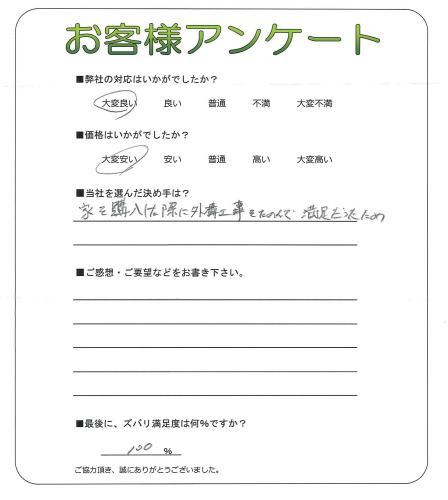 お客様アンケート
■弊社の対応はいかがでしたか？
大変良い 良い 普通 不満 大変不満
■価格はいかがでしたか？
大変安い 安い 普通 高い 大変高い
■当社を選んだ決め手は？
家を購入した際に外構工事をたのんで 満足だったため
■ご感想・ご要望などをお書き下さい。
■最後に、ズバリ満足度は何％ですか？
100 %
ご協力頂き、誠にありがとうございました。